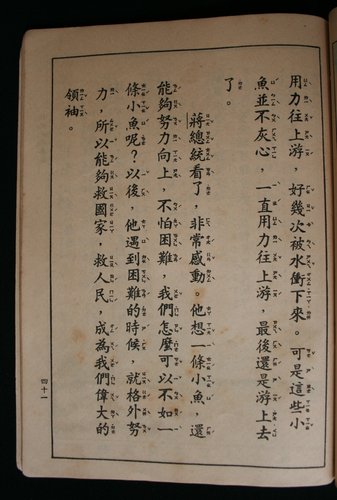 用力往上游，好幾次被水衝下來。可是這些小
魚並不灰心，一直用力往上游，最後還是游上去
了。
蔣總統看了，非常感動。他想一條小魚，還
能夠努力向上，不怕困難，我們怎麼可以不如一
條小魚呢？以後，他遇到困難的時候，就格外努
力，所以能夠救國家，救人民，成為我們偉大的
領袖。
四十一